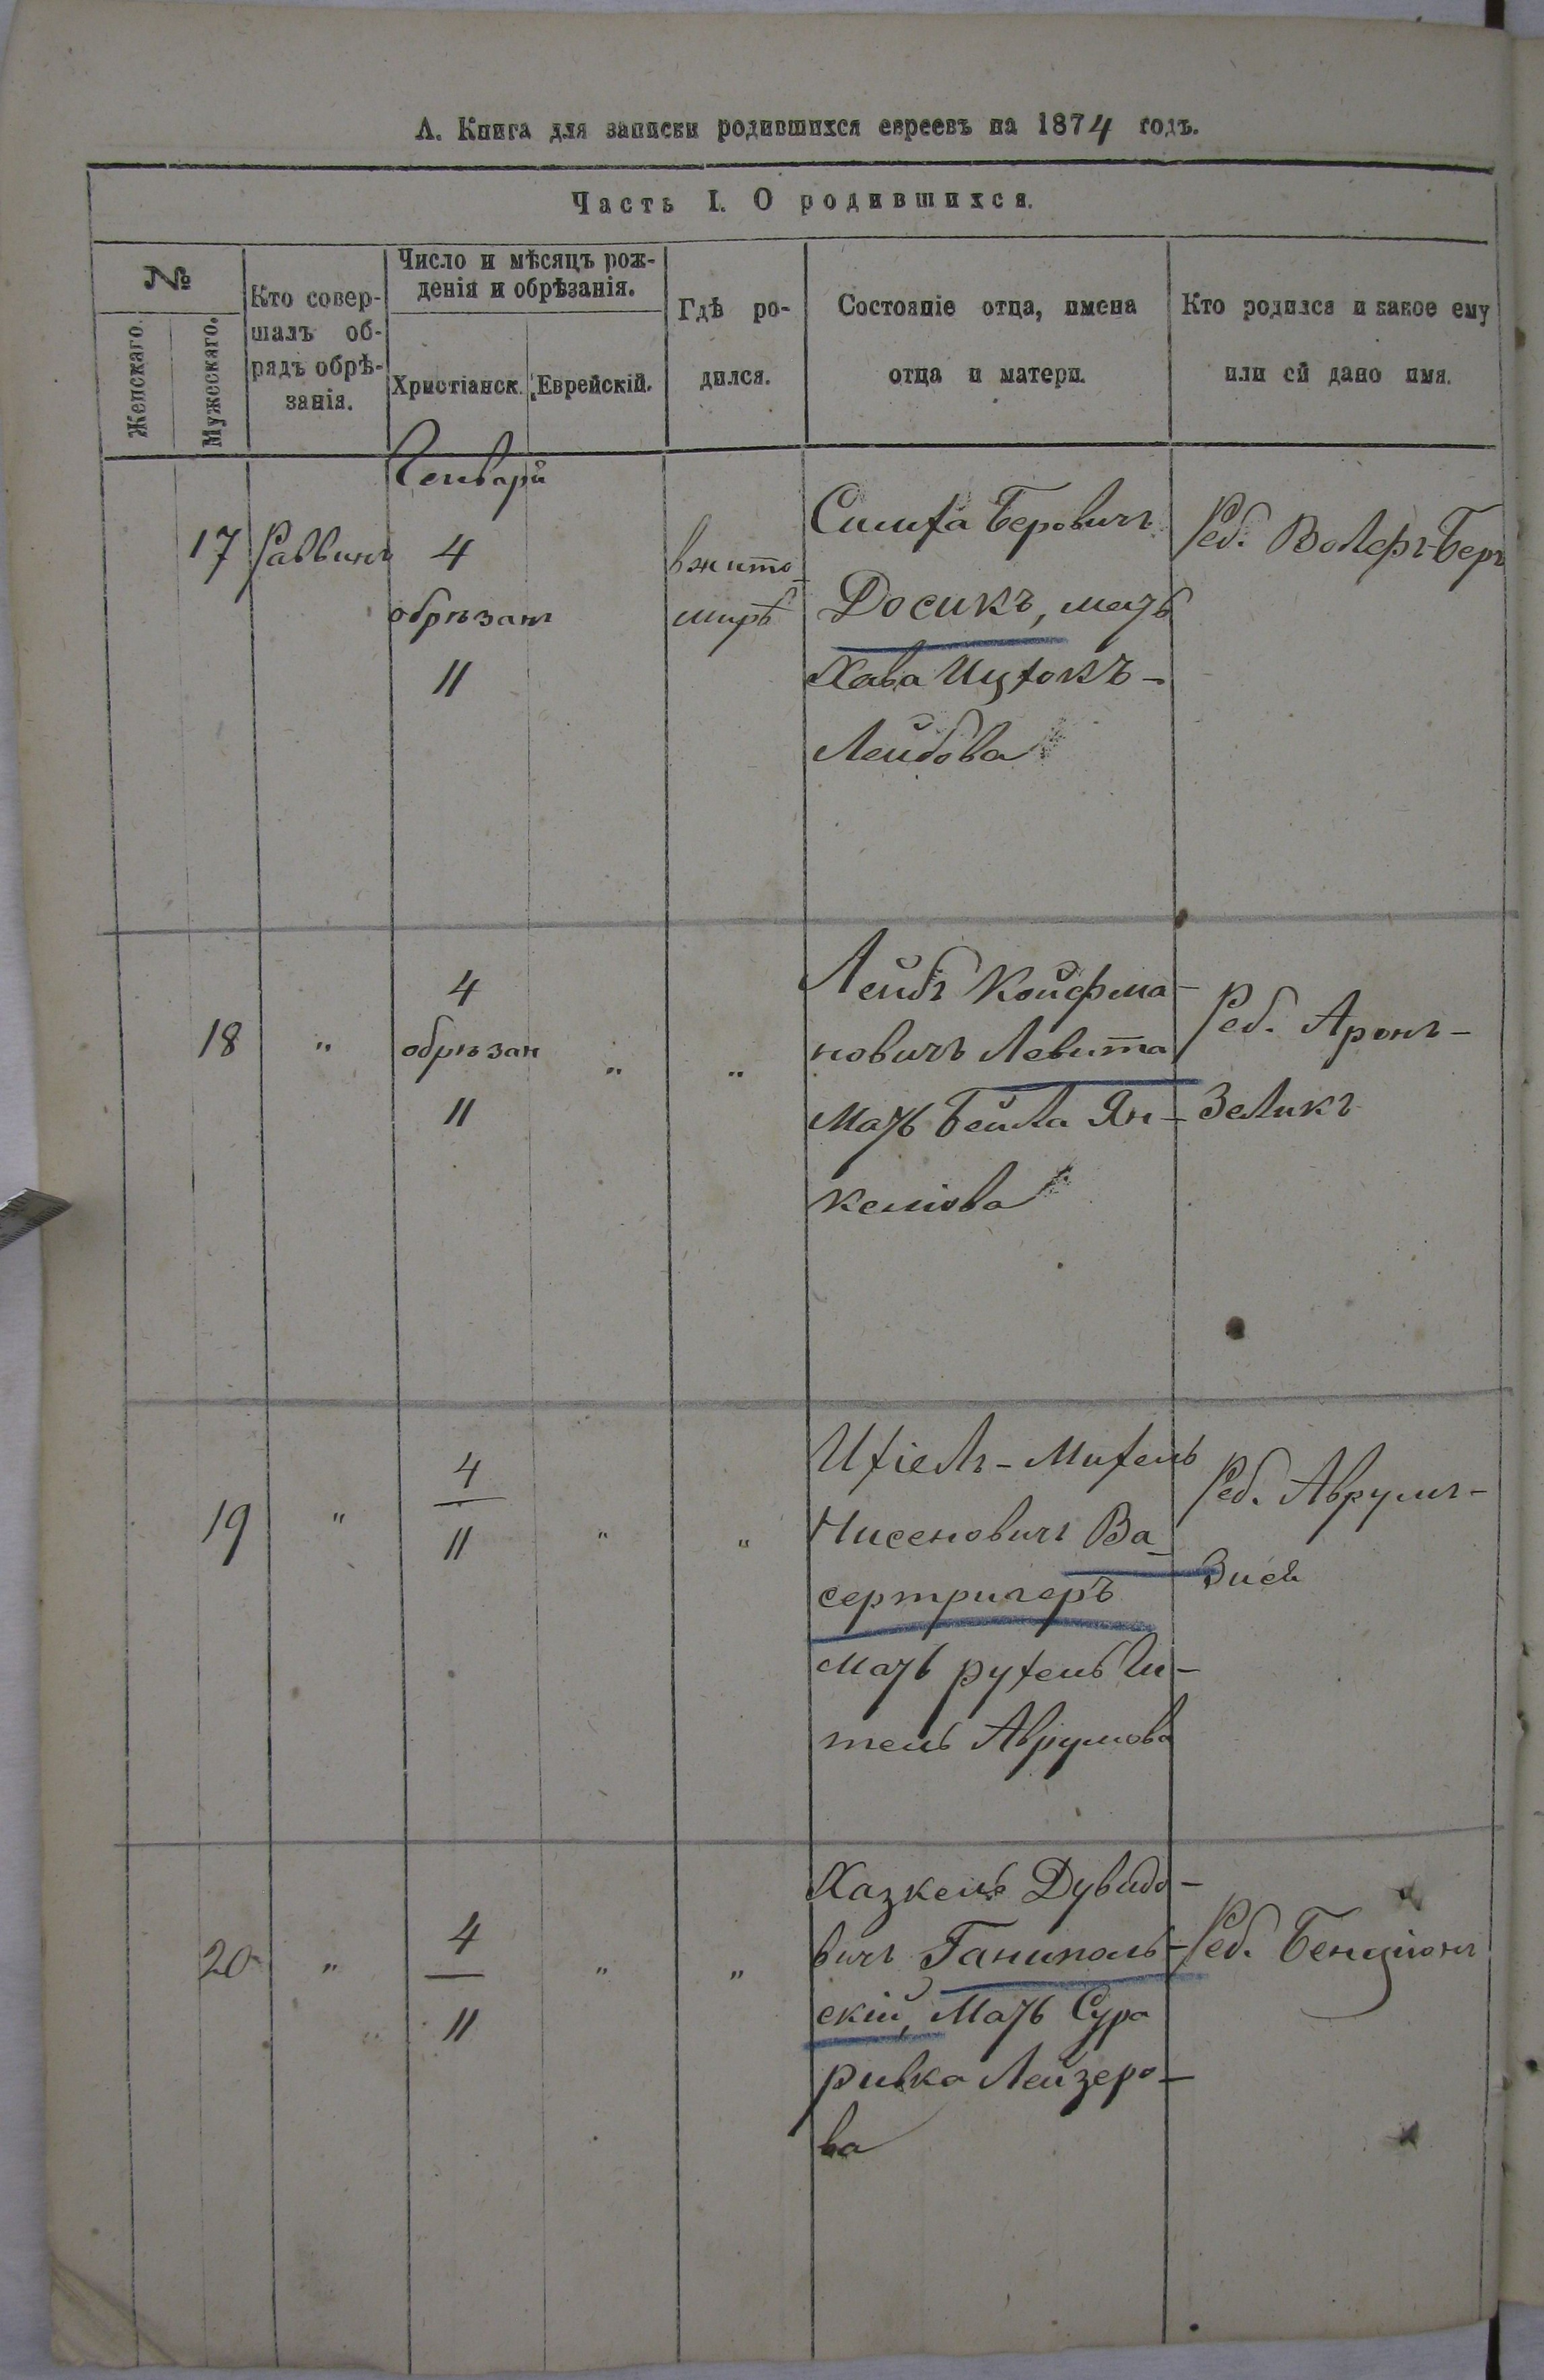 А. Книга для записки родившихся евреевъ на 1874 годъ.
Часть I. О родившихся.
№
Женскаго.
Мужескаго.
Кто совер-
шалъ об-
рядъ обрѣ-
занія.
Число и мѣсяцъ рож-
денія и обрѣзанія.
Христіанск.
Еврейскій.
Гдѣ ро-
дился.
Состояніе отца, имена
отца и матери.
Кто родился и какое ему
или ей дано имя.
Генваря
17
Раввинъ
4
обрѣзанъ
11
в жито-
мирѣ
Симха Беровичъ
Досикъ, мать
Хава Ицхокъ-
Лейбова
Реб. Волфъ-Беръ
18
"
4
обрѣзан
11
"
"
Лейбъ Койфма-
новичъ Левита
Мать Бейла Ян-
келіова
Реб. Аронъ-
Зеликъ
19
"
4
11
"
"
Ихіель-Михель
Нисеновичъ Ва-
сертригеръ
Мать рухель Ги-
тель Аврумова
Реб. Аврумъ-
Зисй
20
"
4
11
"
"
Хазкель Дувидо-
вичъ Ганиполь-
скій, Мать Сура
ривка Лейзеро-
ва
Реб. Бенціонъ